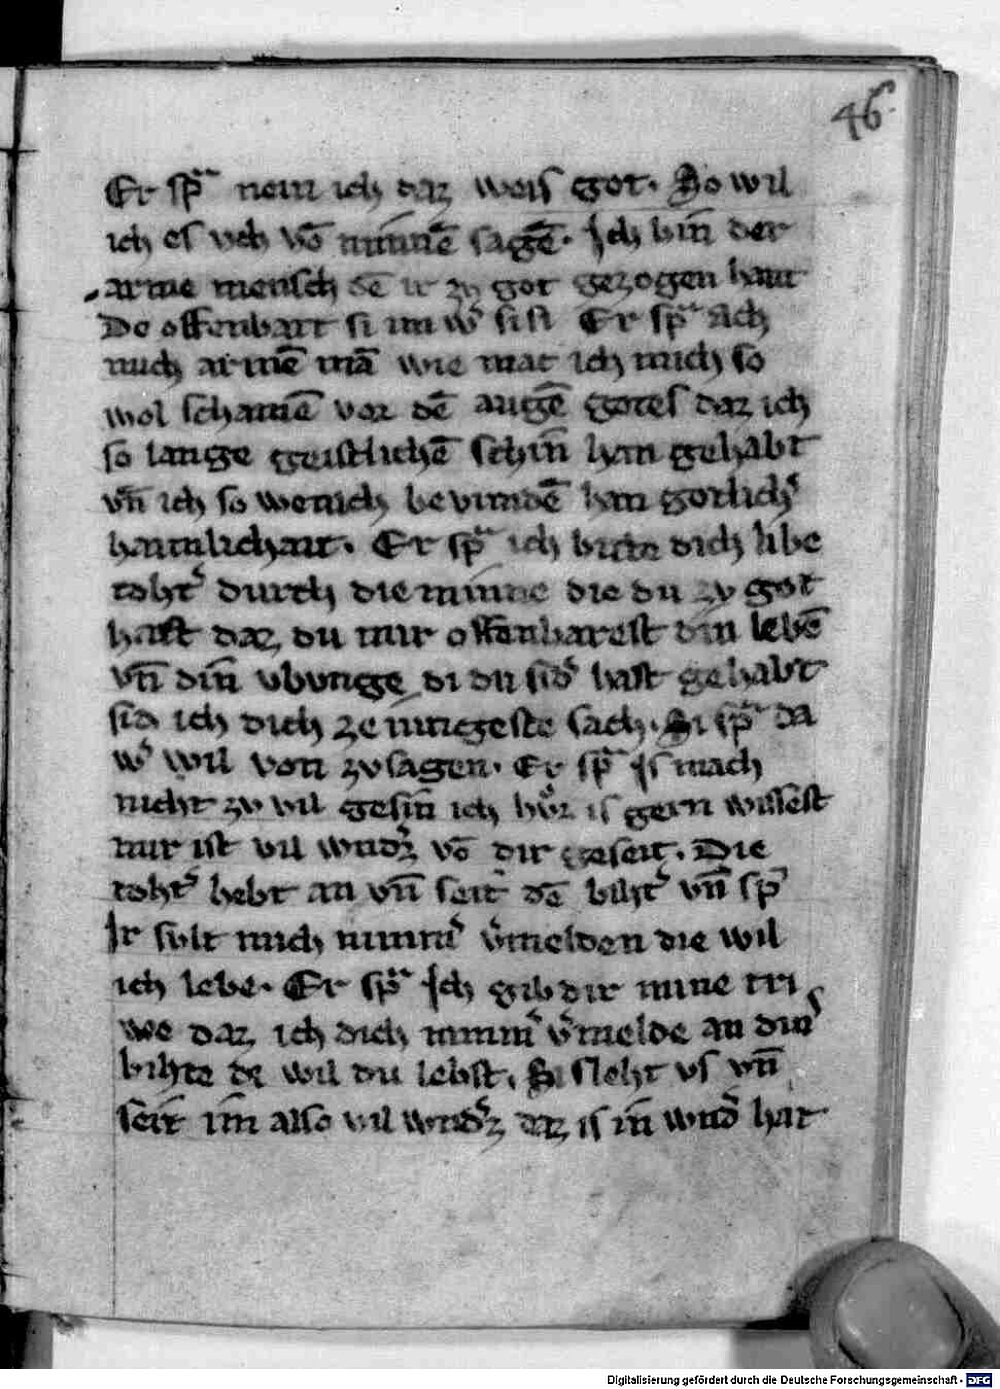 46.
Er sp̄ᵃ nein ich daz weis got. So wil
ich es vch vō minnē sagē. Ich bin der
arme mensch dē ir zv got gezogen hant
Do offenbart si im w͛ si ist Er sp̄ᵃ Ach
mich armē mā wie mac ich mich so
wol schamē vor dē augē gotes daz ich
so lange geistlichē schin han gehabt
vn̄ ich so wenich bevindē han gotlich͛
haimlichait. Er sp̄ᵃ ich bitte dich libe
toht͛ durch die minne die du zv got
hast daz du mir offenbarest din lebē
vn̄ din vbvnge di du sid͛ hast gehabt
sid ich dich ze iungeste sach. Si sp̄ᵃ da
w͛ wil von zvsagen. Er sp̄ᵃ Is mach
nicht zv vil gesin ich hoͤr is gern wissest
mir ist vil wnd͛z vō dir geseit. Die
toht͛ hebt an vn̄ seit dē biht͛ vn̄ sp̄ᵃ
Ir svlt mich nimm͛ v͛melden die wil
ich lebe. Er sp̄ᵃ Ich gib dir mine tri
we daz ich dich nimm͛ v͛melde an din͛
bihte di wil du lebst. Si sleht vf vn̄
seit im also vil wnd͛z daz is in wnd͛ hat
Digitalisierung gefördert durch die Deutsche Forschungsgemeinschaft - DFG